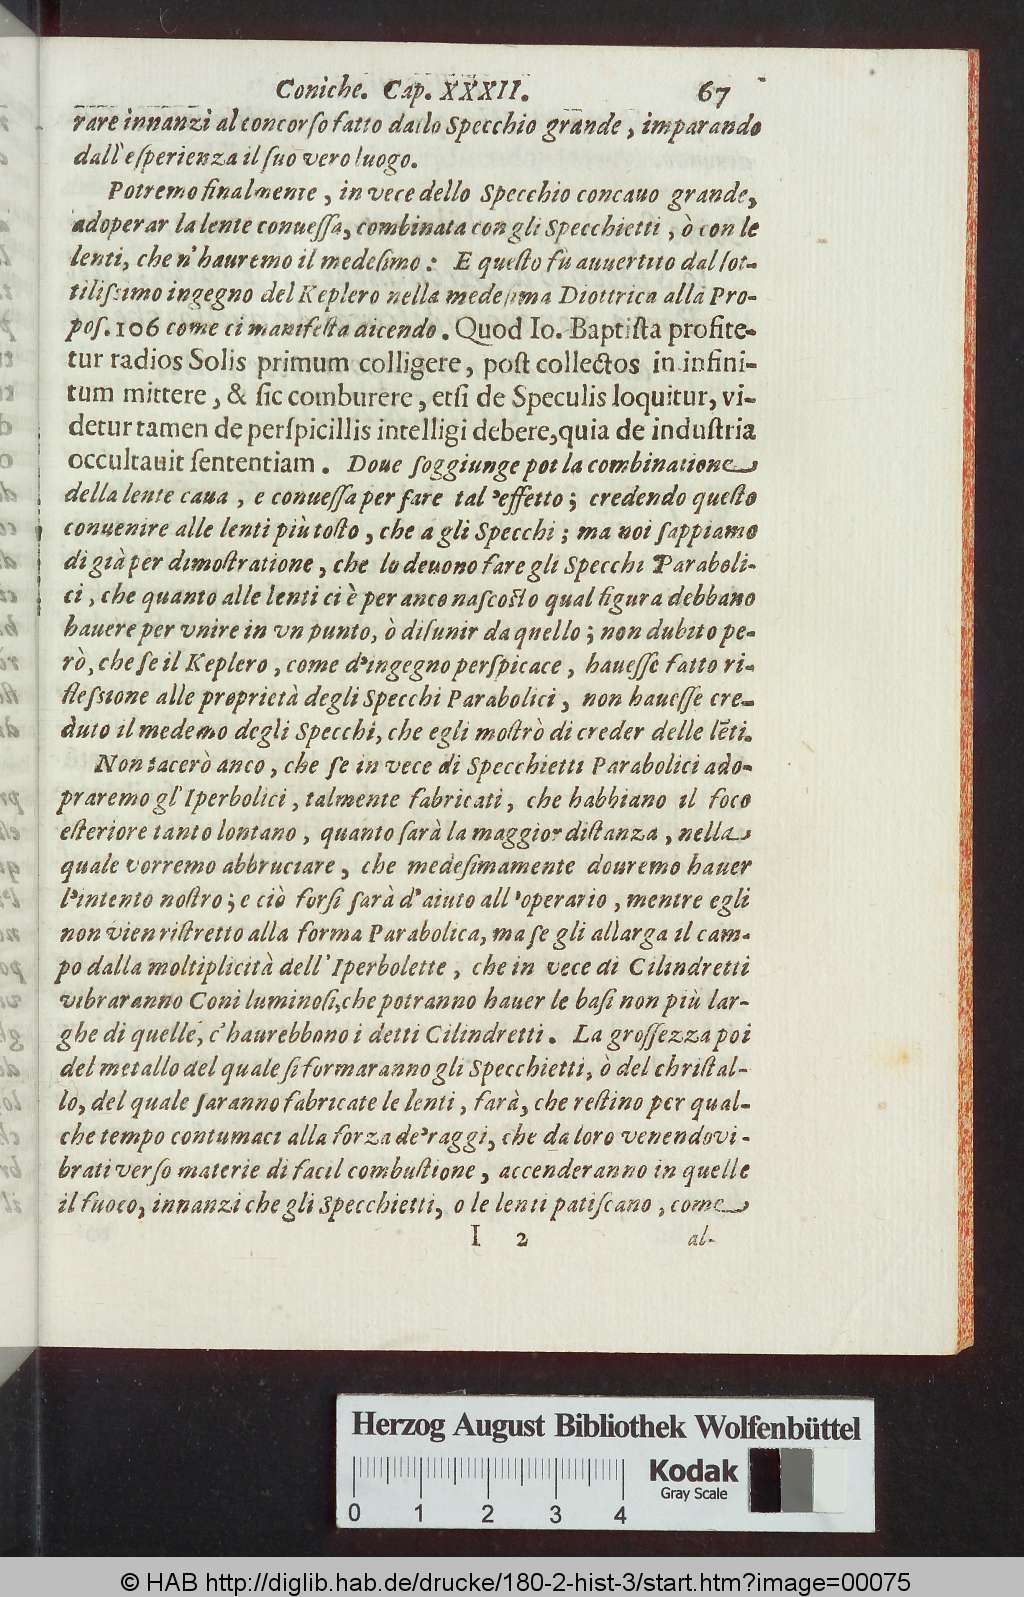 Coniche. Cap. XXXII. 67
rare innanzi al concorſo fatto dallo Specchio grande, imparando
dall'eſperienza il ſuo vero luogo.
Potremo finalmente, in vece dello Specchio concauo grande,
adoperar la lente conueſſa, combinata con gli Specchietti, ò con le
lenti, che n'hauremo il medeſimo: E queſto fù auuertito dal ſot-
tiliſsimo ingegno del Keplero nella medeſima Diottrica alla Pro-
poſ. 106 come ci manifeſta dicendo. Quod Io. Baptiſta profite-
tur radios Solis primum colligere, poſt collectos in infini-
tum mittere, & ſic comburere, etſi de Speculis loquitur, vi-
detur tamen de perſpicillis intelligi debere, quia de induſtria
occultauit ſententiam. Doue ſoggiunge poi la combinatione
della lente caua, e conueſſa per fare tal'effetto; credendo queſto
conuenire alle lenti più toſto, che a gli Specchi; ma noi ſappiamo
di già per dimoſtratione, che lo deuono fare gli Specchi Paraboli-
ci, che quanto alle lenti ci è per anco naſcoſto qual figura debbano
hauere per vnire in vn punto, ò diſunir da quello; non dubito pe-
rò, che ſe il Keplero, come d'ingegno perſpicace, haueſſe fatto ri-
fleſsione alle proprietà degli Specchi Parabolici, non haueſſe cre-
duto il medemo degli Specchi, che egli moſtrò di creder delle lẽti.
Non tacerò anco, che ſe in vece di Specchietti Parabolici ado-
praremo gl'Iperbolici, talmente fabricati, che habbiano il foco
eſteriore tanto lontano, quanto ſarà la maggior diſtanza, nella
quale vorremo abbruciare, che medeſimamente douremo hauer
l'intento noſtro; e ciò forſi ſarà d'aiuto all'operario, mentre egli
non vien riſtretto alla forma Parabolica, ma ſe gli allarga il cam-
po dalla moltiplicità dell'Iperbolette, che in vece di Cilindretti
vibraranno Coni luminoſi, che potranno hauer le baſi non più lar-
ghe di quelle, c'haurebbono i detti Cilindretti. La groſſezza poi
del metallo del quale ſi formaranno gli Specchietti, ò del chriſtal-
lo, del quale ſaranno fabricate le lenti, farà, che reſtino per qual-
che tempo contumaci alla forza de'raggi, che da loro venendo vi-
brati verſo materie di facil combuſtione, accenderanno in quelle
il fuoco, innanzi che gli Specchietti, o le lenti patiſcano, come
I 2 al-
Herzog August Bibliothek Wolfenbüttel
Kodak
Gray Scale
0 1 2 3 4
© HAB http://diglib.hab.de/drucke/180-2-hist-3/start.htm?image=00075